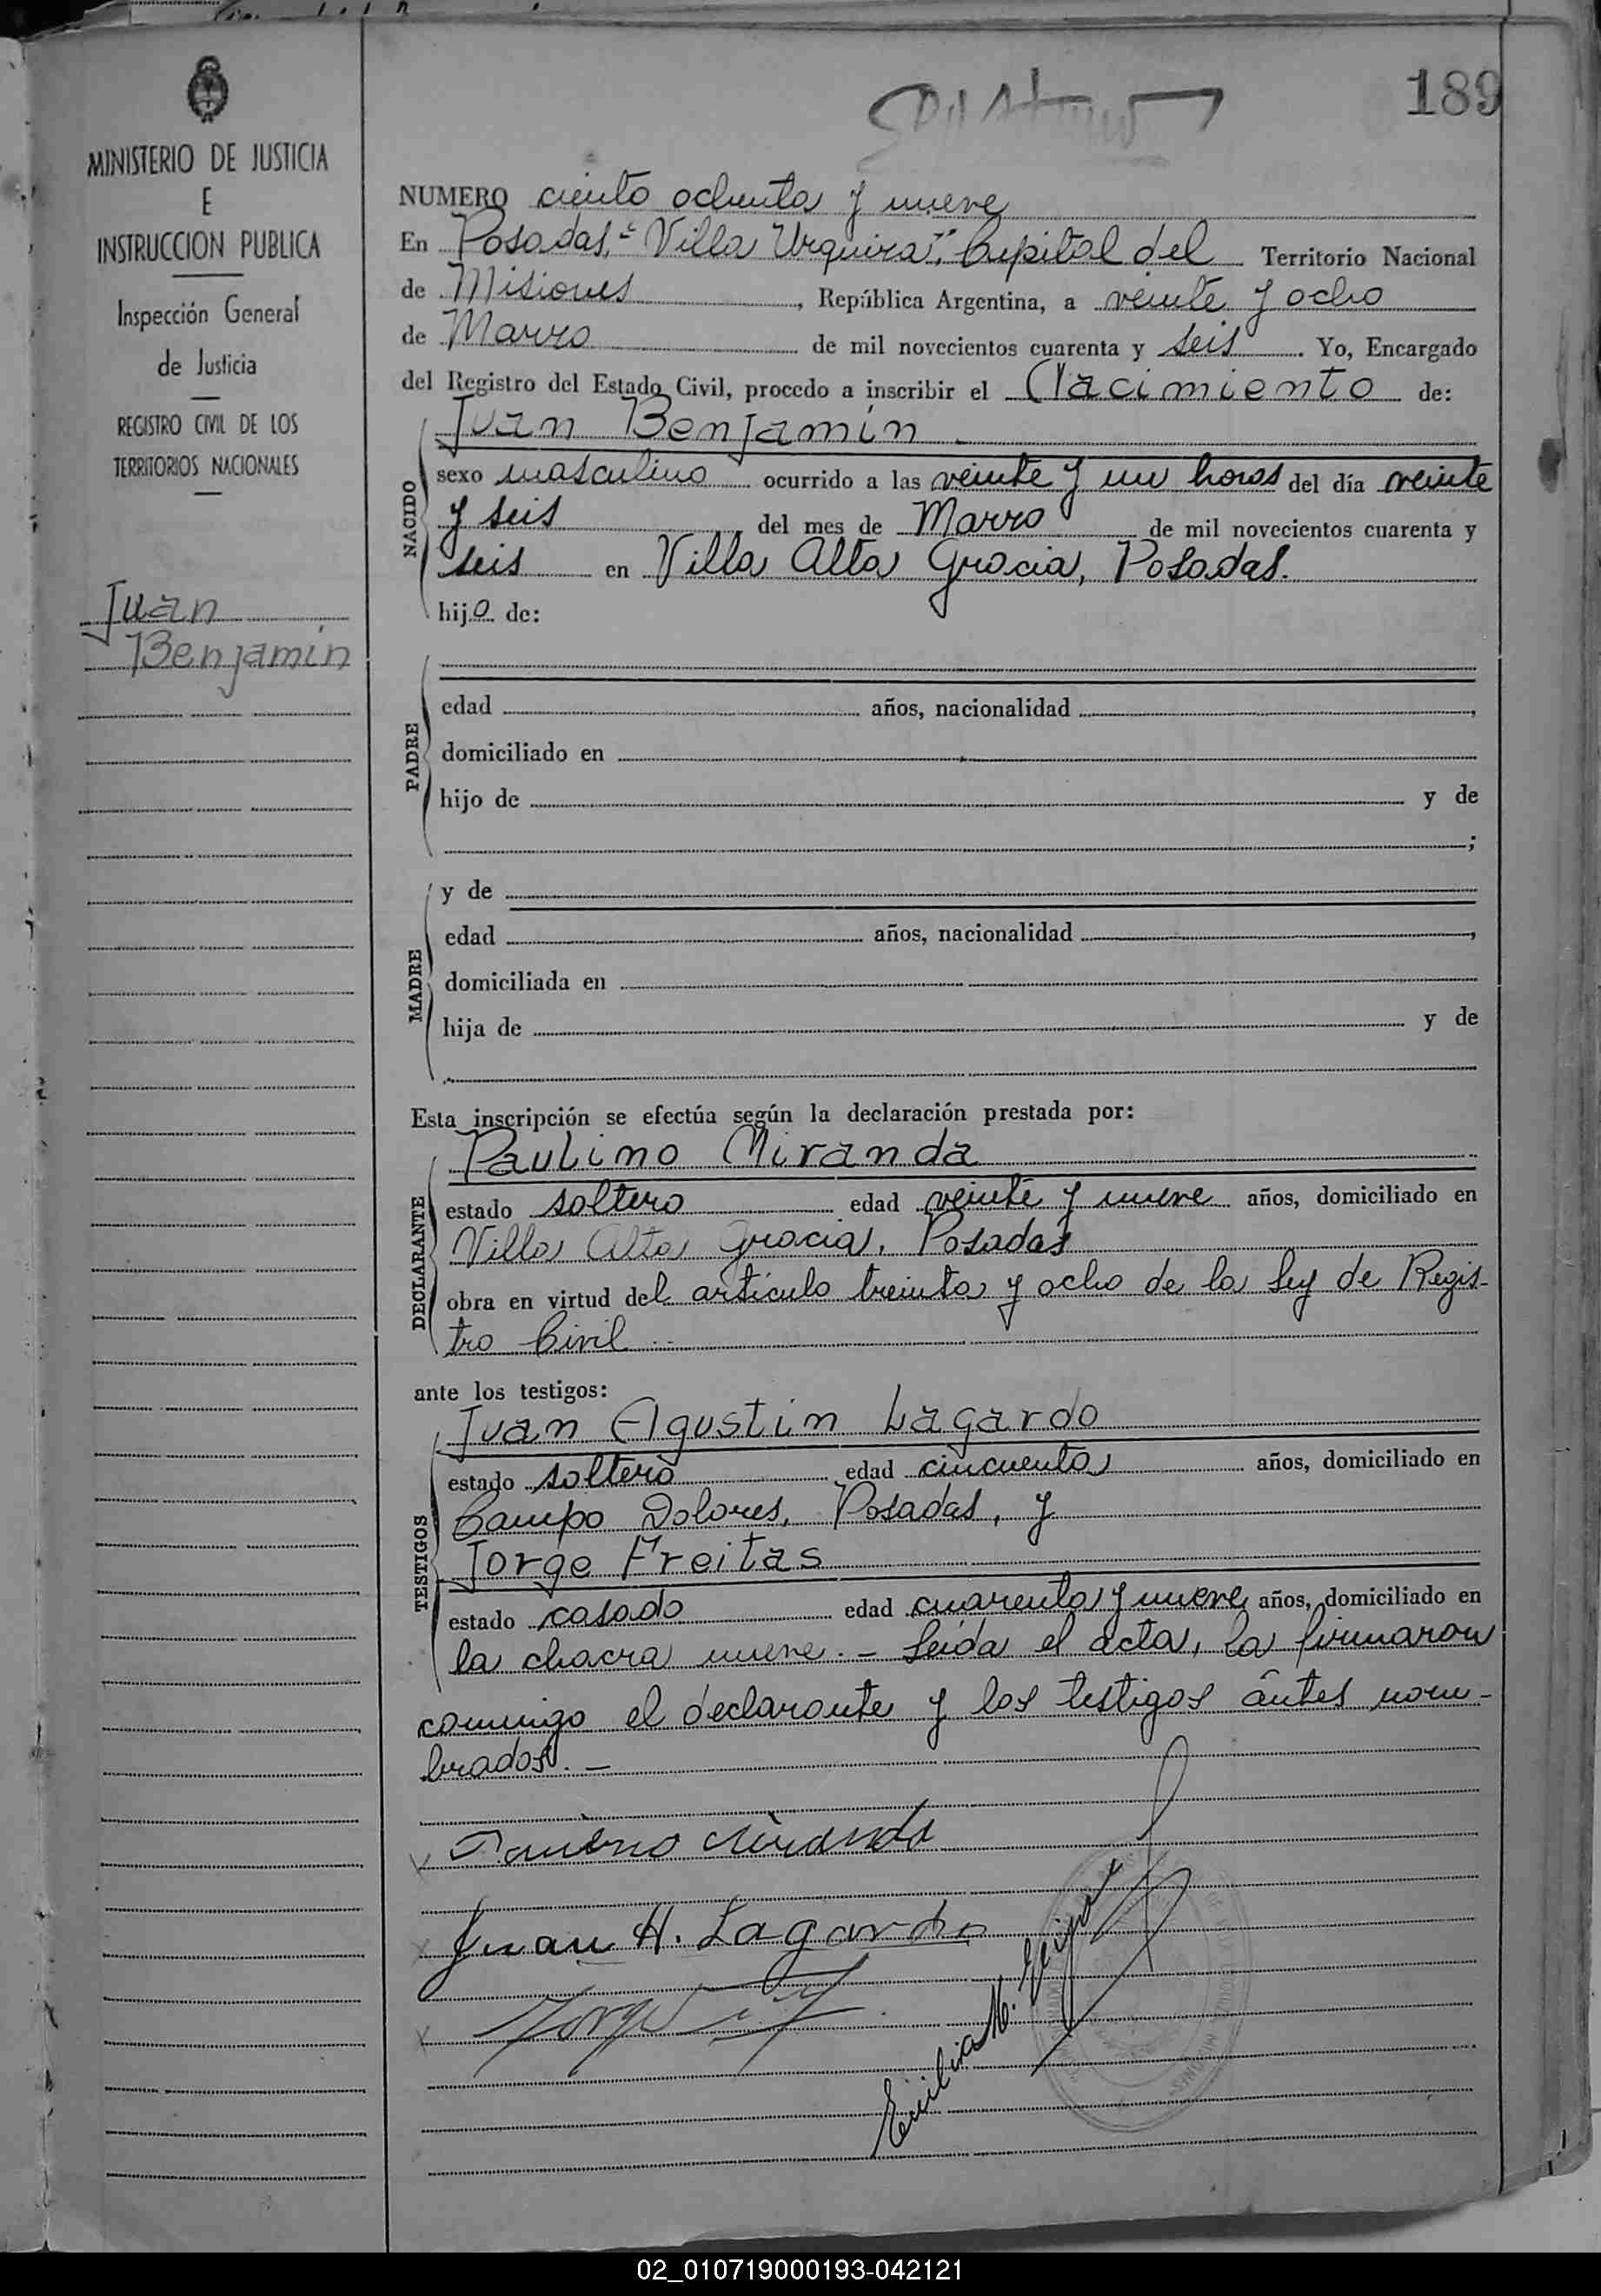 189
MINISTERIO DE JUSTICIA
E
INSTRUCCION PUBLICA
Inspección General
de Justicia
REGISTRO CIVIL DE LOS
TERRITORIOS NACIONALES
Juan
Benjamin
NUMERO ciento ochenta y nueve
En Posadas, "Villa Urquiza", Capital del Territorio Nacional
de Misiones, República Argentina, a veinte y ocho
de Marzo de mil novecientos cuarenta y seis. Yo, Encargado
del Registro del Estado Civil, procedo a inscribir el Nacimiento de:
NACIDO
Juan Benjamin
sexo masculino ocurrido a las veinte y un horas del día veinte
y seis del mes de Marzo de mil novecientos cuarenta y
seis en Villa Alta Gracia, Posadas.
hijo de:
PADRE
edad años, nacionalidad ,
domiciliado en
hijo de y de
;
MADRE
y de
edad años, nacionalidad ,
domiciliada en
hija de y de
Esta inscripción se efectúa según la declaración prestada por:
DECLARANTE
Paulino Miranda
estado soltero edad veinte y nueve años, domiciliado en
Villa Alta Gracia, Posadas
obra en virtud del artículo treinta y ocho de la Ley de Regis-
tro Civil
ante los testigos:
TESTIGOS
Juan Agustin Lagardo
estado soltero edad cincuenta años, domiciliado en
Campo Dolores, Posadas, y
Jorge Freitas
estado casado edad cuarenta y nueve años, domiciliado en
la chacra nueve. - Leída el acta, la firmaron
conmigo el declarante y los testigos ántes nom-
brados. -
Paulino Miranda
Juan A. Lagardo
Jorge
Emilia M.
02_010719000193-042121